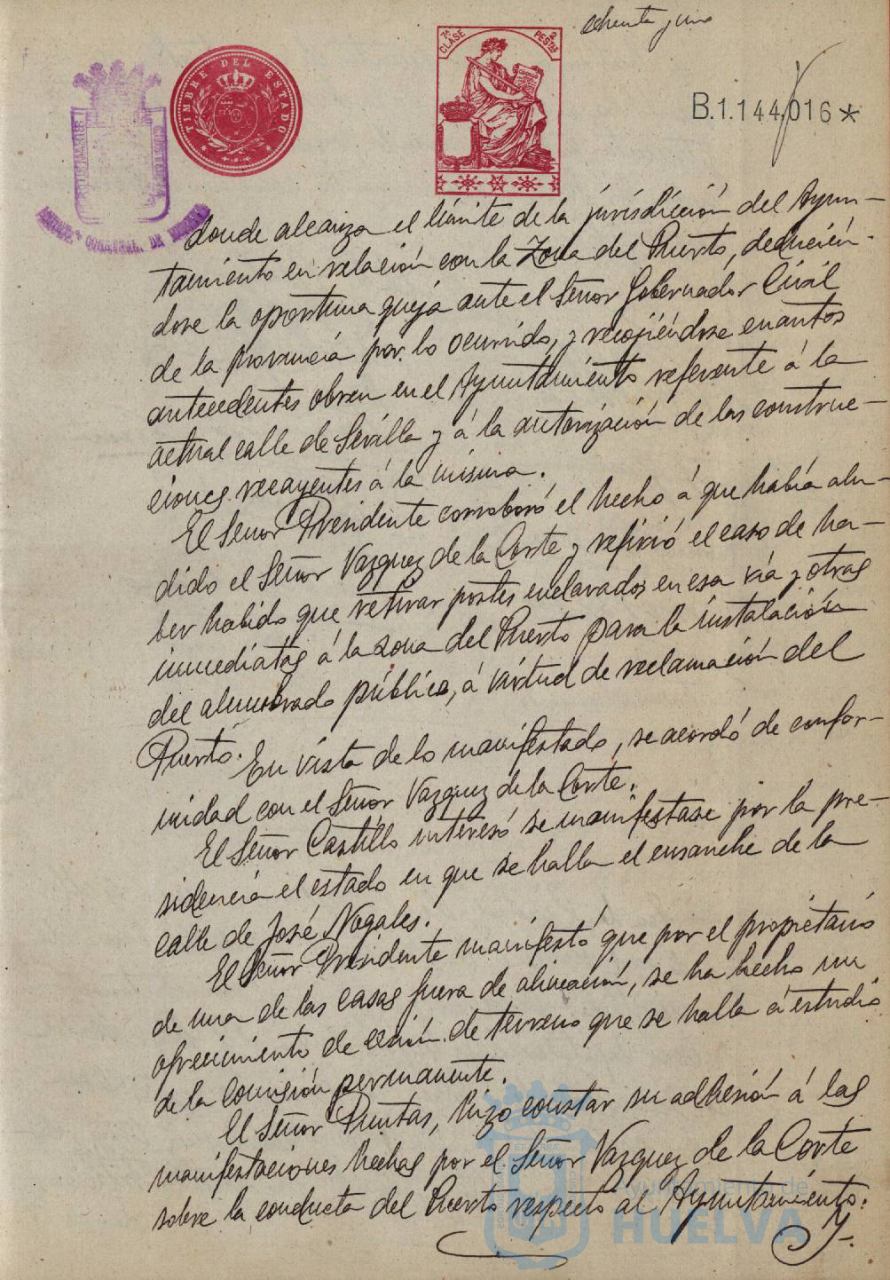 ochenta y uno
7ª CLASE 2 PESETAS
TIMBRE DEL ESTADO
B.1.144,016*
donde alcanza el límite de la jurisdicción del Ayun-
tamiento en relación con la Zona del Puerto, deducién-
dose la oportuna queja ante el Señor Gobernador Civil
de la provincia por lo ocurrido, y recojiéndose cuantos
antecedentes obren en el Ayuntamiento referente á la
actual calle de Sevilla y á la autorización de las construc-
ciones recayentes á la misma.
El Señor Presidente corroboró el hecho á que había alu-
dido el Señor Vazquez de la Corte y refirió el caso de ha-
ber habido que retirar postes enclavados en esa vía y otras
inmediatas á la zona del Puerto para la instalación
del alumbrado público, á virtud de reclamación del
Puerto. En vista de lo manifestado, se acordó de confor-
midad con el Señor Vazquez de la Corte.
El Señor Castillo interesó se manifestase por la pre-
sidencia el estado en que se halla el ensanche de la
calle de José Nogales.
El Señor Presidente manifestó que por el propietario
de una de las casas fuera de alineación, se ha hecho un
ofrecimiento de cesión de terreno que se halla á estudio
de la Comisión permanente.
El Señor Puntas, hizo constar su adhesión á las
manifestaciones hechas por el Señor Vazquez de la Corte
sobre la conducta del Puerto respecto al Ayuntamiento.
Y-
Ayuntamiento de
HUELVA